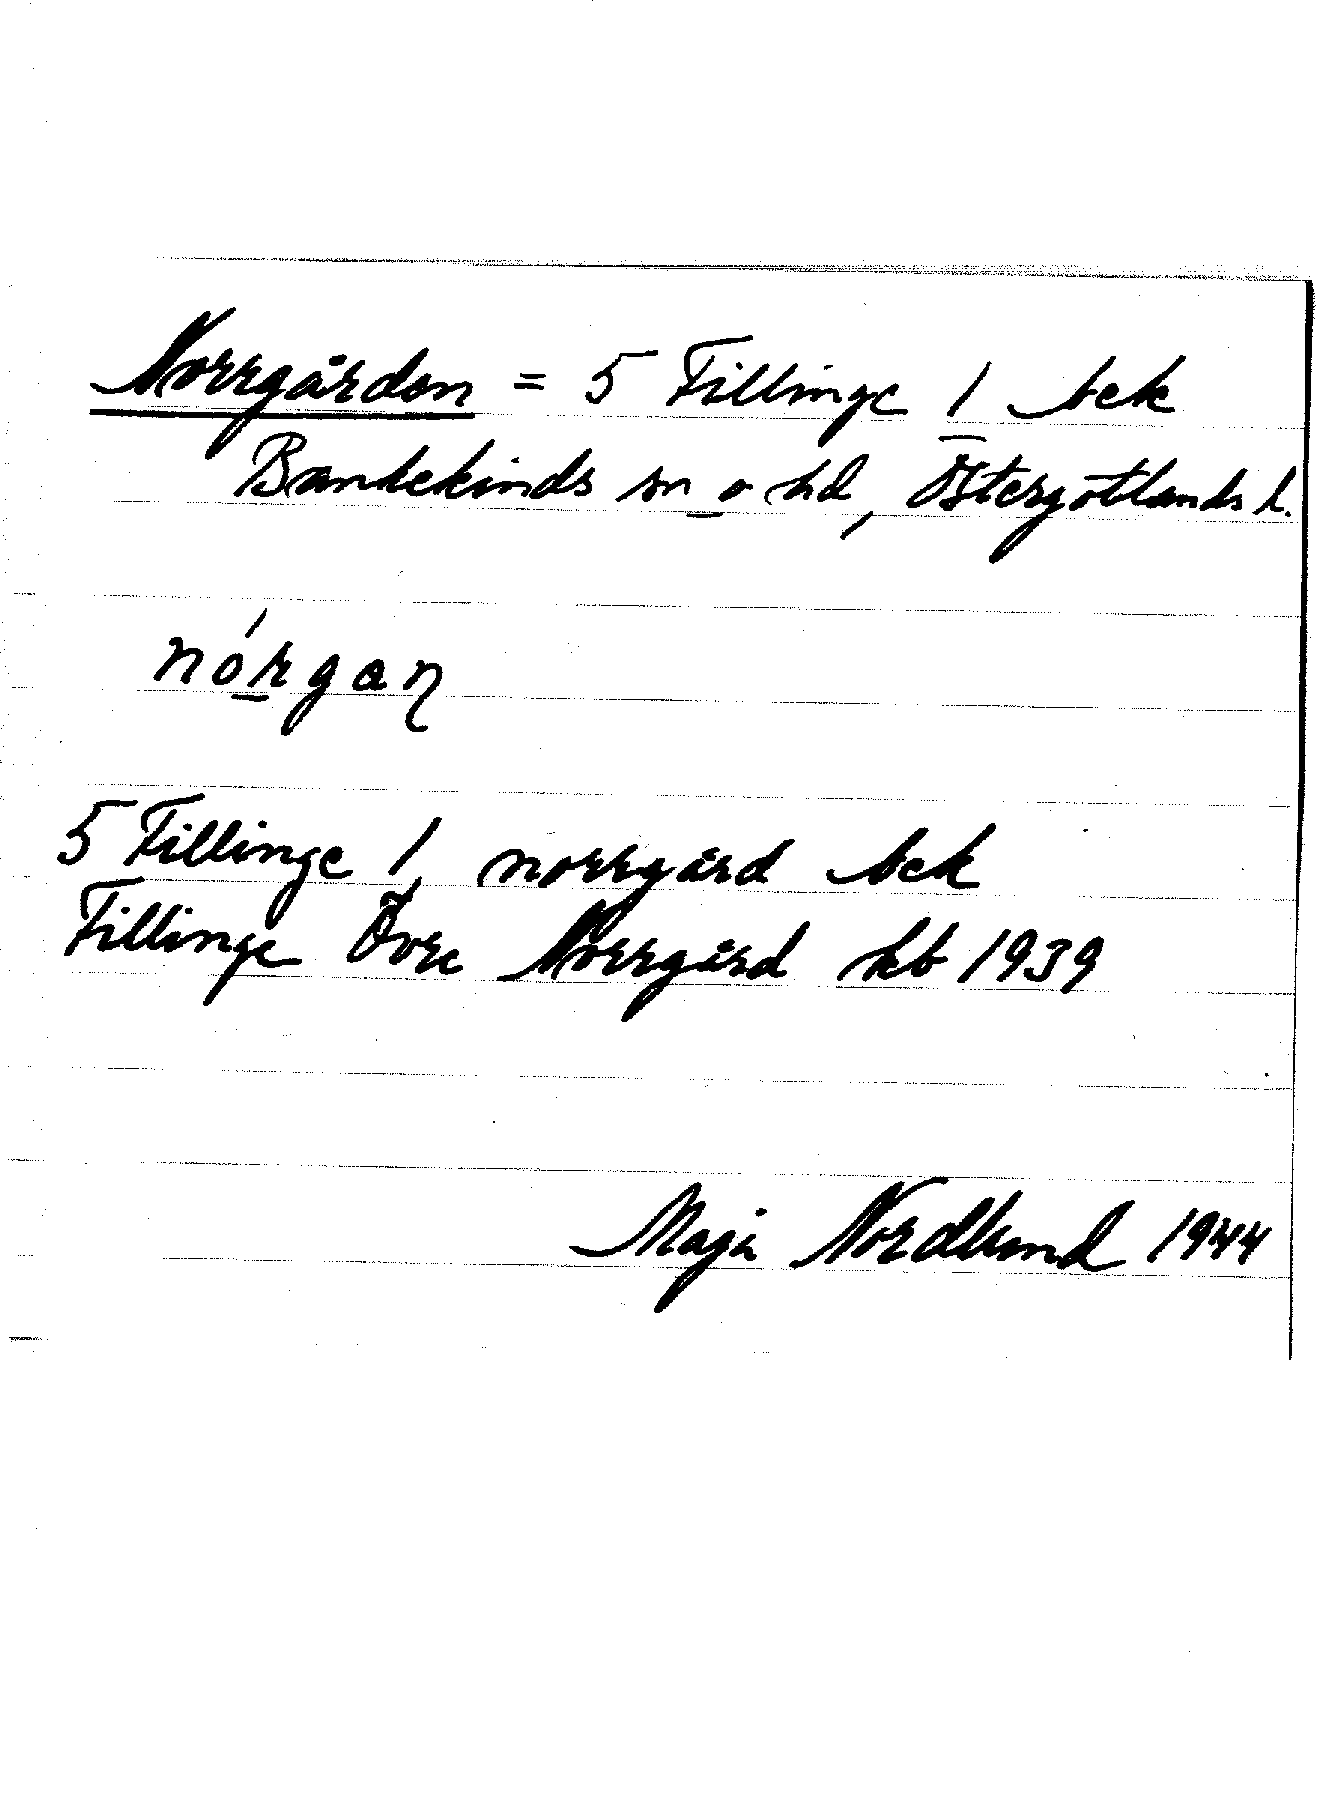 Norrgården = 5 Fillinge 1 bek
Bankekinds sn o hd, Östergötlands l.
nórgaɳ
5 Fillinge 1, norrgård bek
Fillinge Övre Norrgård kb 1939
Maja Nordlund 1944